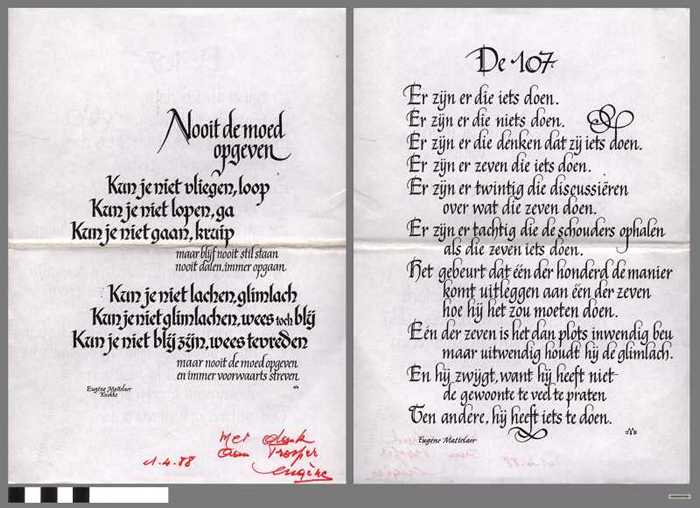 Nooit de moed
opgeven
Kun je niet vliegen, loop
Kun je niet lopen, ga
Kun je niet gaan, kruip
maar blijf nooit stil staan
nooit dalen, immer opgaan
Kun je niet lachen, glimlach
Kun je niet glimlachen, wees toch blij
Kun je niet blij zijn, wees tevreden
maar nooit de moed opgeven
en immer voorwaarts streven
Eugène Mattelaer
Knokke
Met dank
aan Prosper
1.4.88
Eugène
De 107
Er zijn er die iets doen.
Er zijn er die niets doen.
Er zijn er die denken dat zij iets doen.
Er zijn er zeven die iets doen.
Er zijn er twintig die discussiëren
over wat die zeven doen.
Er zijn er tachtig die de schouders ophalen
als die zeven iets doen.
Het gebeurt dat één der honderd de manier
komt uitleggen aan één der zeven
hoe hij het zou moeten doen.
Eén der zeven is het dan plots inwendig beu
maar uitwendig houdt hij de glimlach.
En hij zwijgt, want hij heeft niet
de gewoonte te veel te praten
Ten andere, hij heeft iets te doen.
Eugène Mattelaer